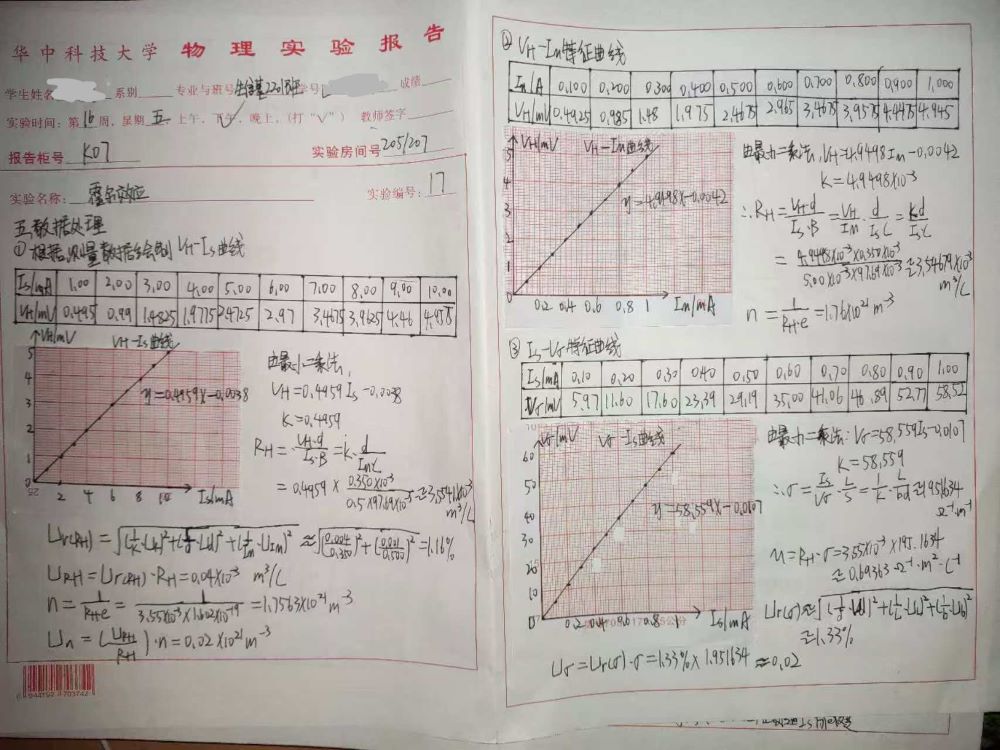 华中科技大学 物理实验报告
学生姓名 系别 专业与班号 2201班 学号 成绩
实验时间：第16周，星期五 上午，下午，晚上，(打"√") 教师签字
报告柜号 K07 实验房间号 205/207
实验名称：霍尔效应 实验编号：17
五 数据处理
① 根据测量数据绘制 VH-Is曲线
Is/mA 1.00 2.00 3.00 4.00 5.00 6.00 7.00 8.00 9.00 10.00
VH/mV 0.495 0.99 1.4825 1.9775 2.4725 2.97 3.4675 3.9625 4.46
VH/mV VH-Is曲线
5
4
3
2
1
y=0.4959x-0.0038
2 4 6 8 10 Is/mA
由最小二乘法,
VH=0.4959Is-0.0038
K=0.4959
RH=VH·d/Is·B=k·d/ImC
=0.4959×0.350×10⁻³/0.5×97.69×10⁻³≈3.5541×10⁻³ m³/C
Ur(RH)=√(1/k·Uk)²+(1/d·Ud)²+(1/Im·UIm)²≈√(0.004/0.350)²+(0.001/0.500)²=1.16%
URH=Ur(RH)·RH=0.04×10⁻³ m³/C
n=1/RHe=1/3.55×10⁻³×1.602×10⁻¹⁹=1.7563×10²¹m⁻³
Un=(URH/RH)·n=0.02×10²¹m⁻³
6 944192 703742
② VH-Im特征曲线
Im/A 0.100 0.200 0.300 0.400 0.500 0.600 0.700 0.800 0.900 1.000
VH/mV 0.4925 0.985 1.48 1.975 2.4675 2.965 3.4675 3.9575 4.4475 4.945
VH/mV VH-Im曲线
5
4
3
2
1
y=4.9498x-0.0042
0.2 0.4 0.6 0.8 1 Im/mA
由最小二乘法, VH=4.9498Im-0.0042
K=4.9498×10⁻³
∴RH=VH·d/Is·B=VH/Im·d/IsC=Kd/IsC
=4.9498×10⁻³×0.350×10⁻³/5.00×10⁻³×97.69×10⁻³≈3.54679×10⁻³ m³/C
n=1/RH·e=1.76×10²¹m⁻³
③ Is-Vσ特征曲线
Is/mA 0.10 0.20 0.30 0.40 0.50 0.60 0.70 0.80 0.90 1.00
Vσ/mV 5.97 11.60 17.60 23.39 29.19 35.00 41.06 46.89 52.77 58.52
Vσ/mV Vσ-Is曲线
60
50
40
30
20
10
y=58.559x-0.0107
0.2 0.4 0.6 0.8 1 Is/mA
由最小二乘法: Vσ=58.559Is-0.0107
K=58.559
∴σ=Is/Vσ·L/S=1/k·L/bd≈195.1634 Ω⁻¹·m⁻¹
u=RH·σ=3.55×10⁻³×195.1634
≈0.69363Ω⁻¹·m²·C⁻¹
Ur(σ)≈√(1/d·Ud)²+(1/L·UL)²+(1/b·Ub)²
≈1.33%
Uσ=Ur(σ)·σ=1.33%×1.951634≈0.02